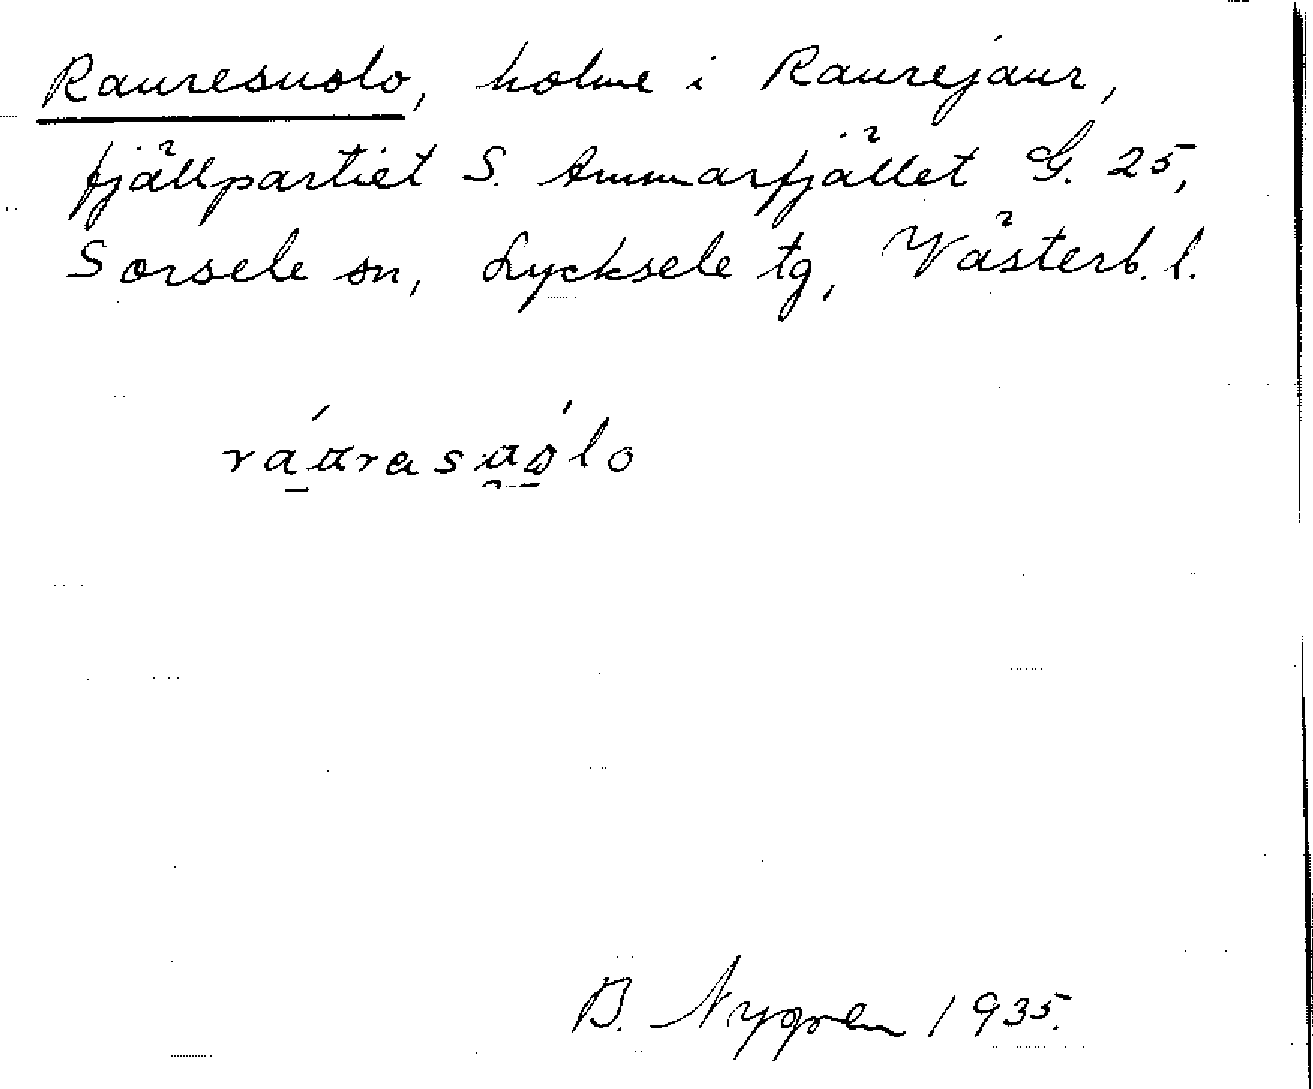 Rauresuolo, holme i Raurejaur,
fjällpartiet S. Ammarfjället G. 25,
Sorsele sn, Lycksele tg, Västerb. l.
B. Nygren 1935.